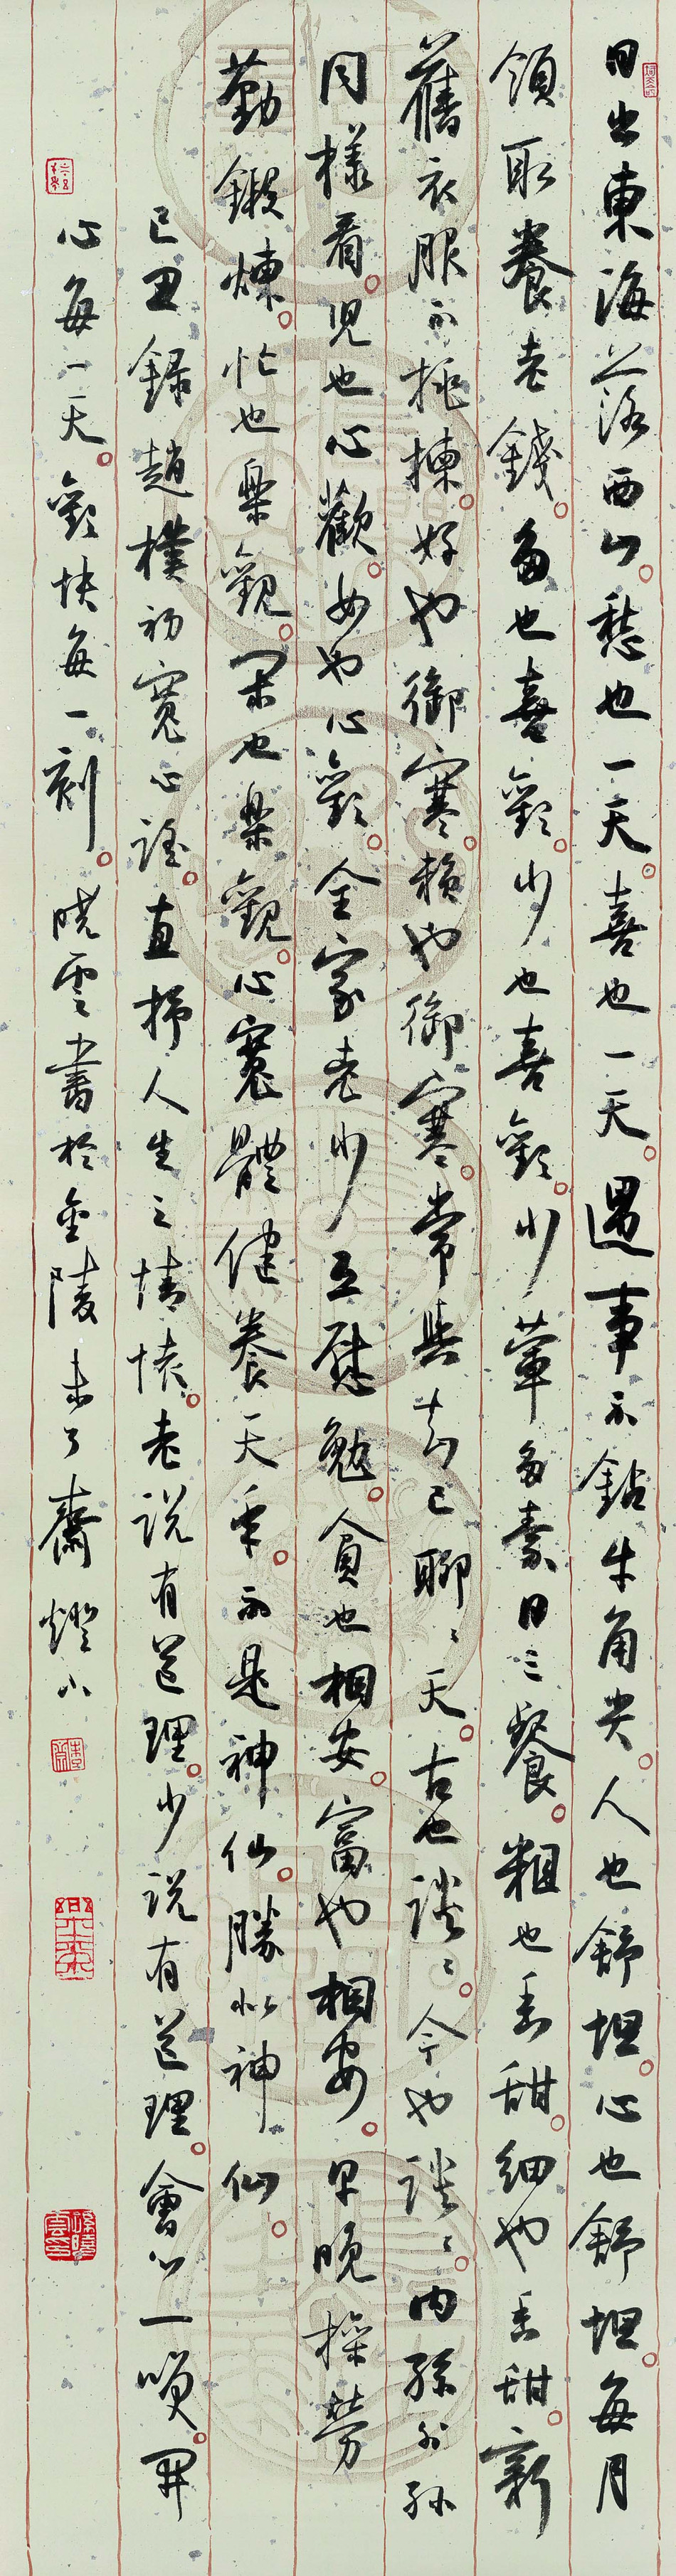 日出東海落西山。愁也一天。喜也一天。遇事不鉆牛角尖。人也舒坦。心也舒坦。每月
領取養老錢。多也喜歡。少也喜歡。少葷多素日三餐。粗也香甜。細也香甜。新
舊衣服不挑揀。好也御寒。賴也御寒。常與知己聊聊天。古也談談。今也談談。內孫外孫
同樣看。兒也心歡。女也心歡。全家老少互慰勉。貧也相安。富也相安。早晚操勞
勤鍛煉。忙也樂觀。閑也樂觀。心寬體健養天年。不是神仙。勝似神仙。
己丑錄趙樸初寬心謠。直抒人生之情懷。老說有道理。少說有道理。會心一笑。開
心每一天。歡快每一刻。曉雲書於金陵未了齋燈下